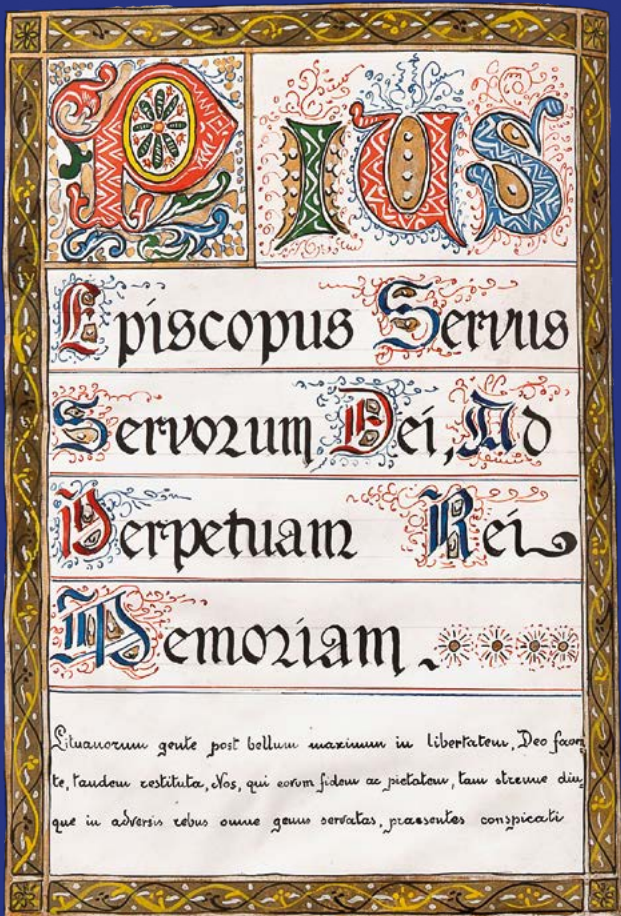 Pius
Episcopus Servus
Servorum Dei, Ad
Perpetuam Rei
Memoriam.
Lituanorum gente post bellum maximum in libertatem, Deo faven-
te, tandem restituta, Nos, qui eorum fidem ac pietatem, tam strenue diu-
que in adversis rebus omne genus servatas, praesentes conspicati